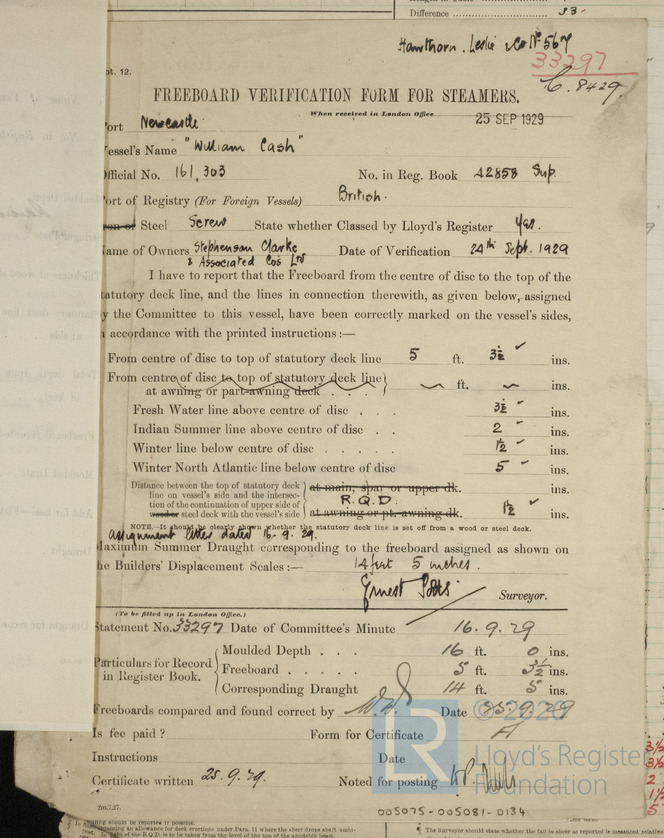 Difference 33
Hawthorn. Leslie & Co No 567
33297
C. 8429
pt. 12.
FREEBOARD VERIFICATION FORM FOR STEAMERS.
When received in London Office 25 SEP 1929
Port Newcastle
Vessel's Name "William Cash"
Official No. 161,303 No. in Reg. Book 42858 Sup.
Port of Registry (For Foreign Vessels) British.
Iron or Steel Screw State whether Classed by Lloyd's Register Yes.
Name of Owners Stephenson Clarke & Associated Cos Ltd Date of Verification 24th Sept. 1929
I have to report that the Freeboard from the centre of disc to the top of the
statutory deck line, and the lines in connection therewith, as given below, assigned
by the Committee to this vessel, have been correctly marked on the vessel's sides,
in accordance with the printed instructions:—
From centre of disc to top of statutory deck line 5 ft. 3½ ins.
From centre of disc to top of statutory deck line
at awning or part-awning deck . . . ft. ins.
Fresh Water line above centre of disc . . . 3½ ins.
Indian Summer line above centre of disc . . 2 ins.
Winter line below centre of disc . . . . . 1½ ins.
Winter North Atlantic line below centre of disc 5 ins.
Distance between the top of statutory deck
line on vessel's side and the intersec-
tion of the continuation of upper side of
wood or steel deck with the vessel's side
at main, spar or upper dk.
R.Q.D.
at awning or pt. awning dk. 1½ ins.
NOTE.—It should be clearly shown whether the statutory deck line is set off from a wood or steel deck.
assignment letter dated 16.9.29.
Maximum Summer Draught corresponding to the freeboard assigned as shown on
the Builders' Displacement Scales:— 14 feet 5 inches.
Ernest Potts Surveyor.
(To be filled up in London Office.)
Statement No. 33297 Date of Committee's Minute 16.9.29
Particulars for Record
in Register Book.
Moulded Depth . . . 16 ft. 0 ins.
Freeboard . . . . . 5 ft. 3½ ins.
Corresponding Draught 14 ft. 5 ins.
Freeboards compared and found correct by Date 25.9.29
Is fee paid? Form for Certificate A
Instructions Date
Certificate written 25.9.29. Noted for posting
© 2020
LR
Lloyd's Register
Foundation
2m,7,27.
005075-005081-0134